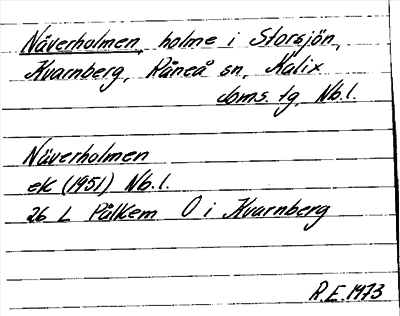 Näverholmen, holme i Storsjön,
Kvarnberg, Råneå sn, Kalix
doms. tg, Nb.l.
Näverholmen
ek (1951) Nb.l.
26 L Pålkem O i Kvarnberg
R.E. 1973